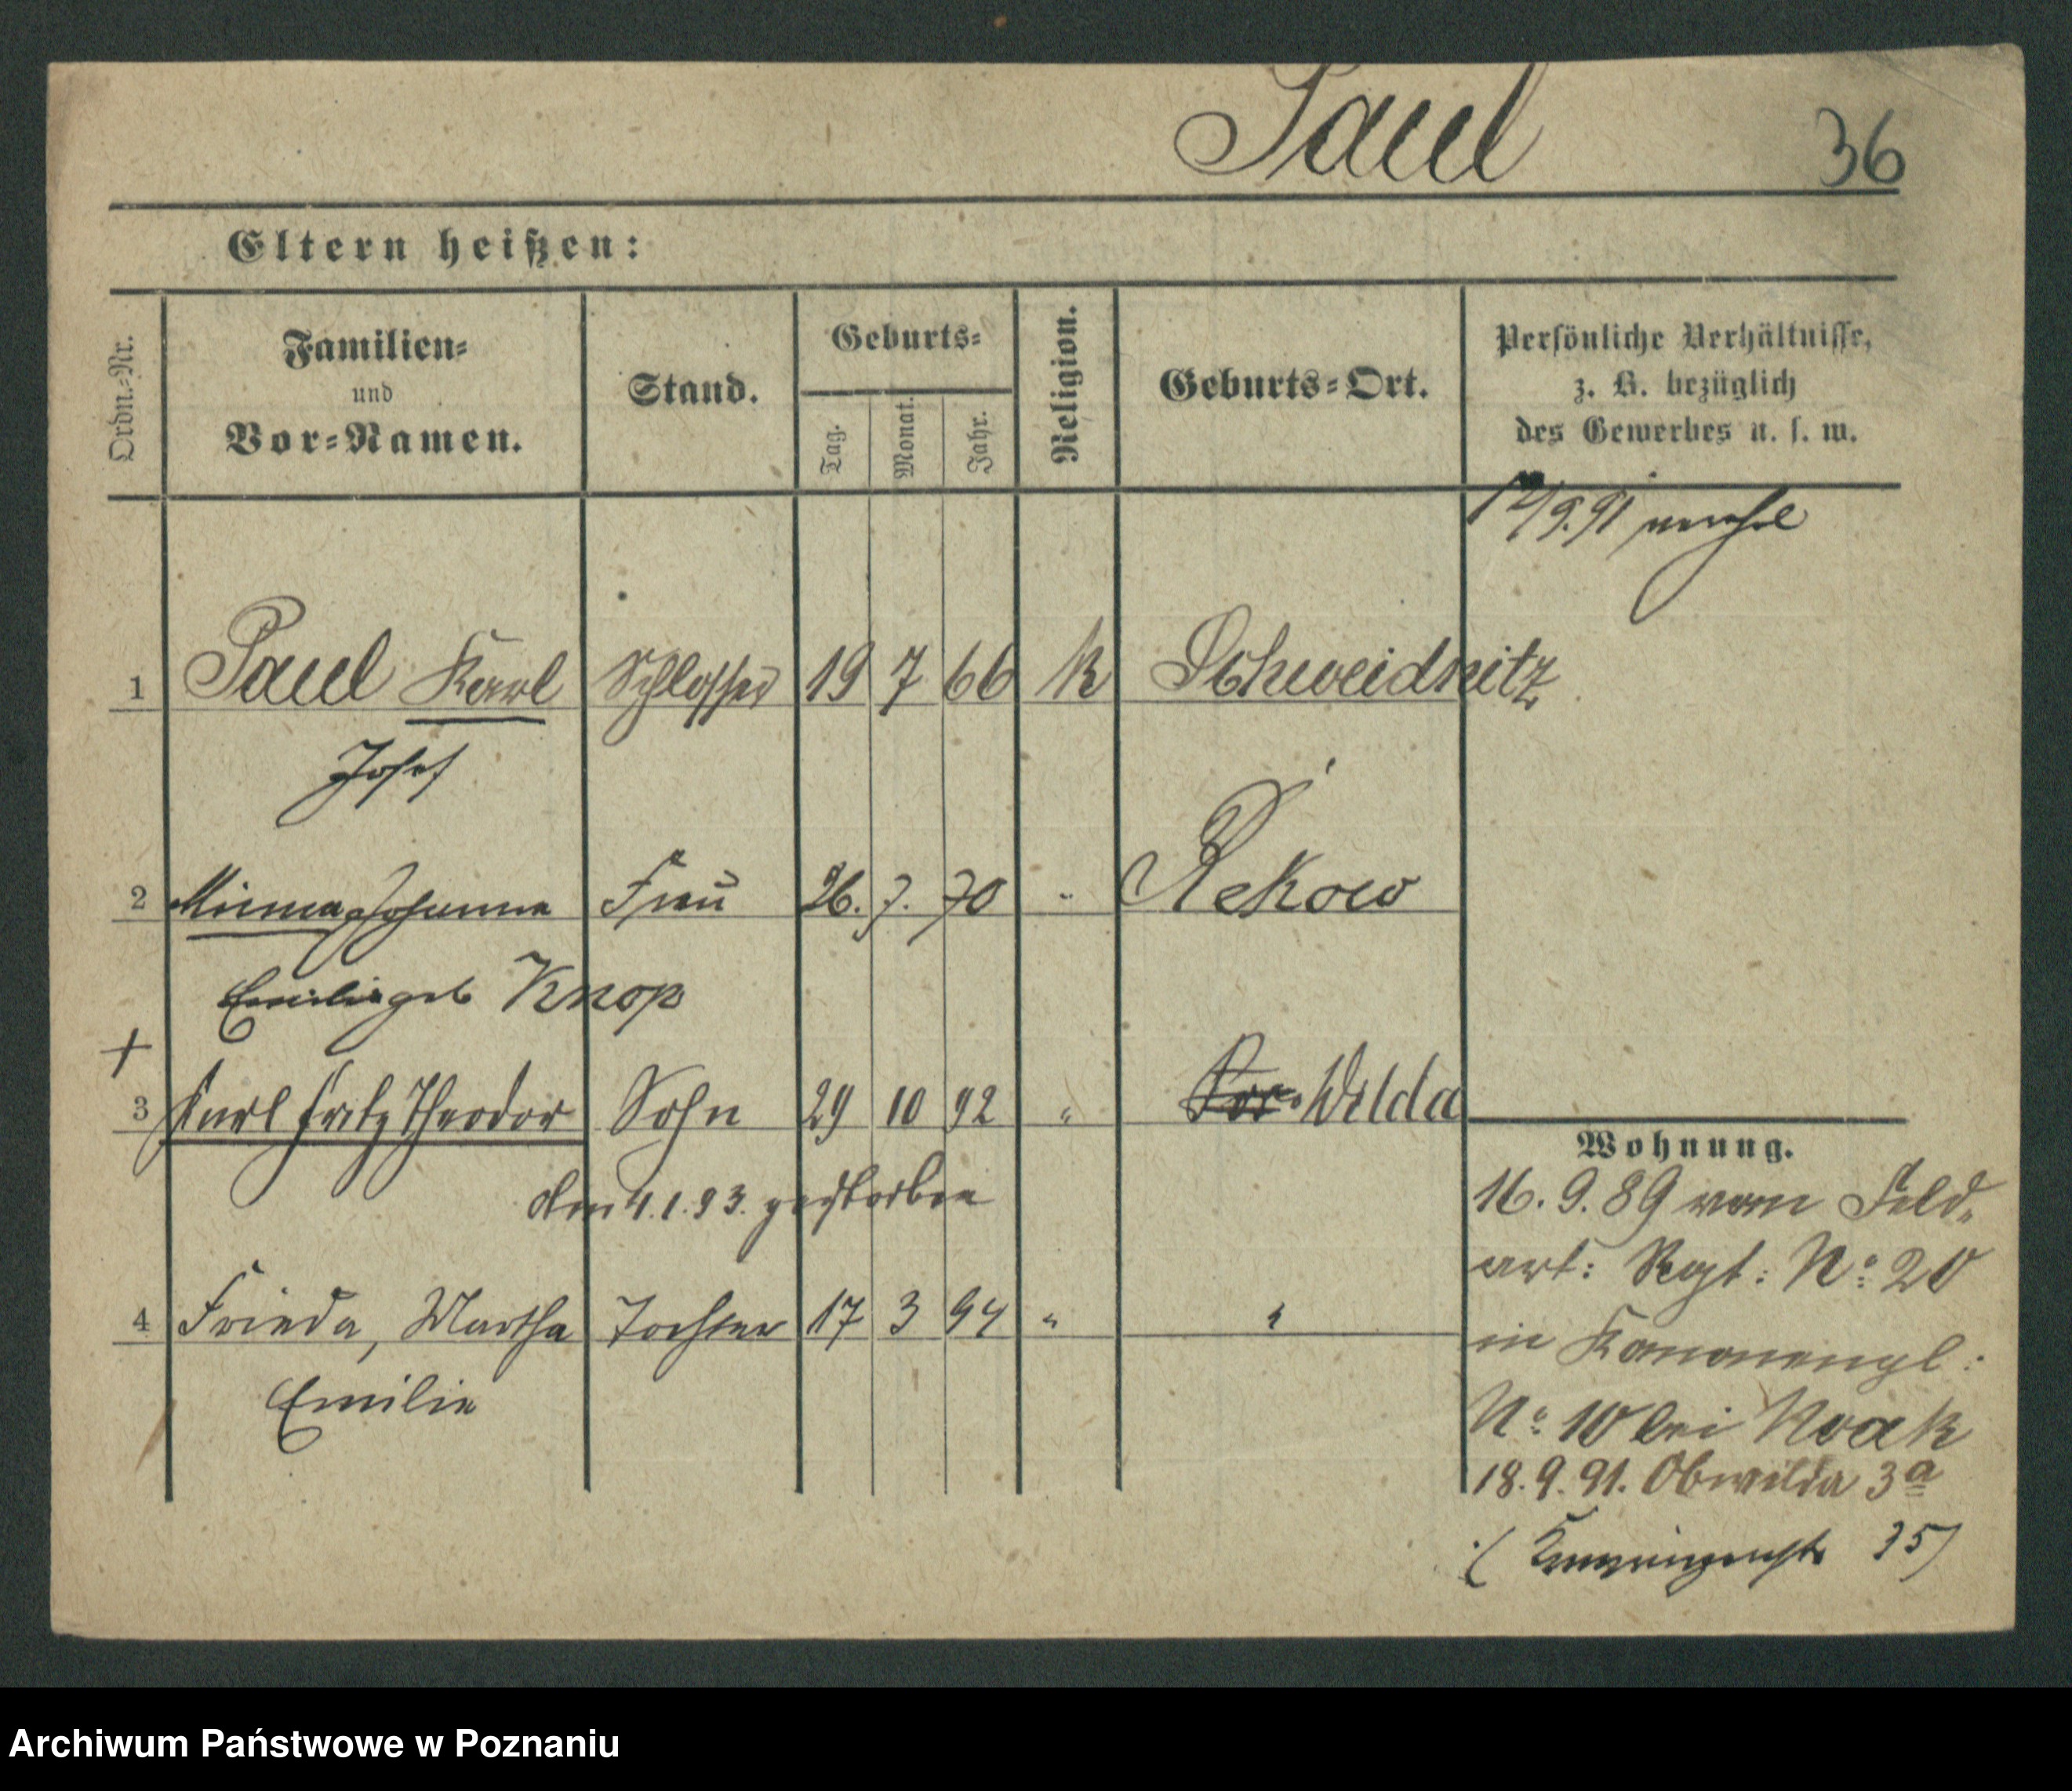 Paul 36
Eltern heißen:
Ordn.-Nr. Familien- und Vor-Namen. Stand. Geburts- Tag. Monat. Jahr. Religion. Geburts-Ort. Persönliche Verhältnisse, z. B. bezüglich des Gewerbes u. s. w.
12/9.91
1 Paul Karl Schlosser 19 7 66 k Schweidnitz
Josef
2 Minna Johanna Frau 26. 7. 70 " Rekow
Emilie geb Knop
+
3 Karl Fritz Theodor Sohn 29 10 92 " Pos. Wilda
den 4.1.93. gestorben
4 Frieda, Martha Tochter 17 3 94 " "
Emilie
Wohnung.
16.9.89 vom Feld-
art: Regt: No: 20
in Kanonengl:
No: 10 bei Noak
18.9.91. Obwilda 3a
( 35)
Archiwum Państwowe w Poznaniu